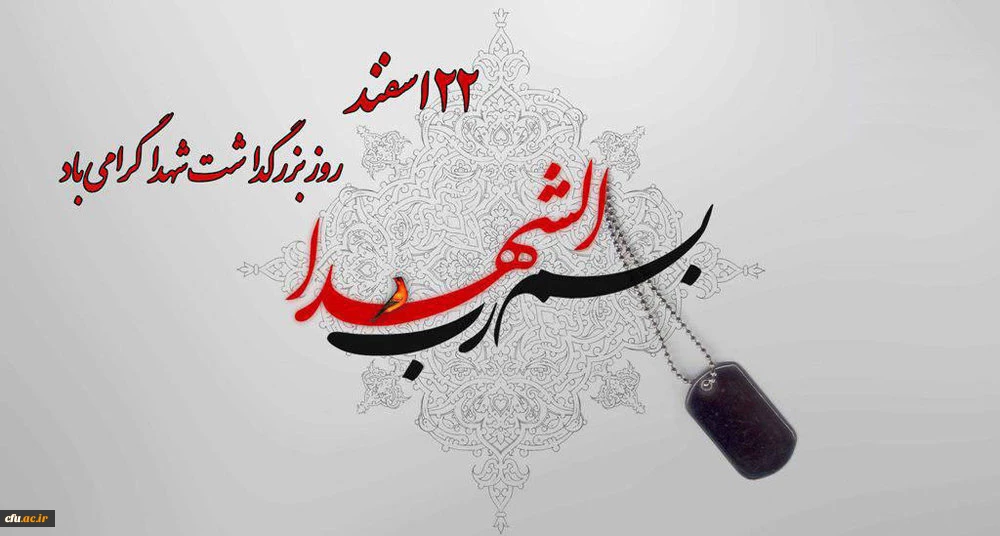 ۲۲ اسفند
روز بزرگداشت شهدا گرامی باد
بسم رب الشهدا
cfu.ac.ir